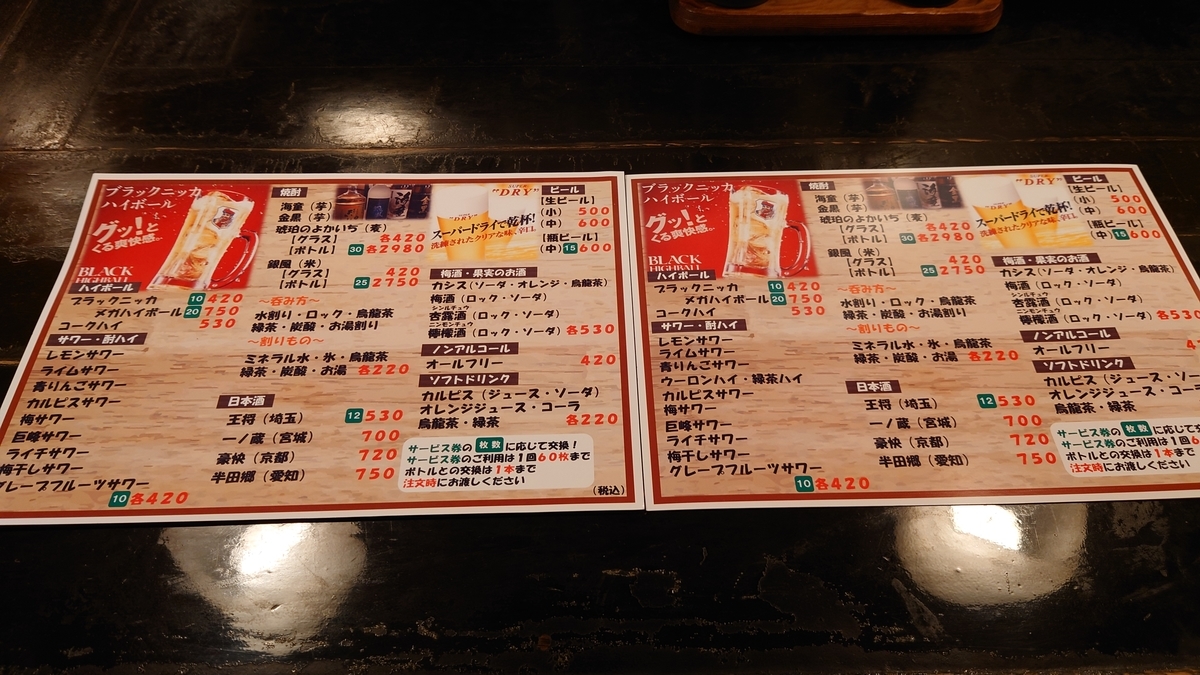 ブラックニッカ
ハイボール
グッ!と
くる爽快感
BLACK
HIGHBALL
ハイボール
ブラックニッカ 10 420
メガハイボール 20 750
コークハイ 530
サワー・酎ハイ
レモンサワー
ライムサワー
青りんごサワー
カルピスサワー
梅サワー
巨峰サワー
ライチサワー
梅干しサワー
グレープフルーツサワー
10 各420
焼酎
海童(芋)
金黒(芋)
琥珀のよかいち(麦)
[グラス] 各420
[ボトル] 30 各2980
銀風(米)
[グラス] 420
[ボトル] 25 2750
〜呑み方〜
水割り・ロック・烏龍茶
緑茶・炭酸・お湯割り
〜割りもの〜
ミネラル水・氷・烏龍茶
緑茶・炭酸・お湯 各220
日本酒
王将(埼玉) 12 530
一ノ蔵(宮城) 700
豪快(京都) 720
半田郷(愛知) 750
"DRY"
スーパードライで乾杯!
洗練されたクリアな味、辛口。
ビール
[生ビール]
(小) 500
(中) 600
[瓶ビール]
(中) 15 600
梅酒・果実のお酒
カシス(ソーダ・オレンジ・烏龍茶)
梅酒(ロック・ソーダ)
シンルチュウ
杏露酒(ロック・ソーダ)
ニンモンチュウ
檸檬酒(ロック・ソーダ) 各530
ノンアルコール
オールフリー 420
ソフトドリンク
カルピス(ジュース・ソーダ)
オレンジジュース・コーラ
烏龍茶・緑茶 各220
サービス券の枚数に応じて交換!
サービス券のご利用は1回60枚まで
ボトルとの交換は1本まで
注文時にお渡しください
(税込)
ブラックニッカ
ハイボール
グッ!と
くる爽快感
BLACK
HIGHBALL
ハイボール
ブラックニッカ 10 420
メガハイボール 20 750
コークハイ 530
サワー・酎ハイ
レモンサワー
ライムサワー
青りんごサワー
ウーロンハイ・緑茶ハイ
カルピスサワー
梅サワー
巨峰サワー
ライチサワー
梅干しサワー
グレープフルーツサワー
10 各420
焼酎
海童(芋)
金黒(芋)
琥珀のよかいち(麦)
[グラス] 各420
[ボトル] 30 各2980
銀風(米)
[グラス] 420
[ボトル] 25 2750
〜呑み方〜
水割り・ロック・烏龍茶
緑茶・炭酸・お湯割り
〜割りもの〜
ミネラル水・氷・烏龍茶
緑茶・炭酸・お湯 各220
日本酒
王将(埼玉) 12 530
一ノ蔵(宮城) 700
豪快(京都) 720
半田郷(愛知) 750
"DRY"
スーパードライで乾杯!
洗練されたクリアな味、辛口。
ビール
[生ビール]
(小) 500
(中) 600
[瓶ビール]
(中) 15 600
梅酒・果実のお酒
カシス(ソーダ・オレンジ・烏龍茶)
梅酒(ロック・ソーダ)
シンルチュウ
杏露酒(ロック・ソーダ)
ニンモンチュウ
檸檬酒(ロック・ソーダ) 各530
ノンアルコール
オールフリー 4
ソフトドリンク
カルピス(ジュース・ソー
オレンジジュース・コー
烏龍茶・緑茶
サービス券の枚数に応じて交
サービス券のご利用は1回6
ボトルとの交換は1本まで
注文時にお渡しください